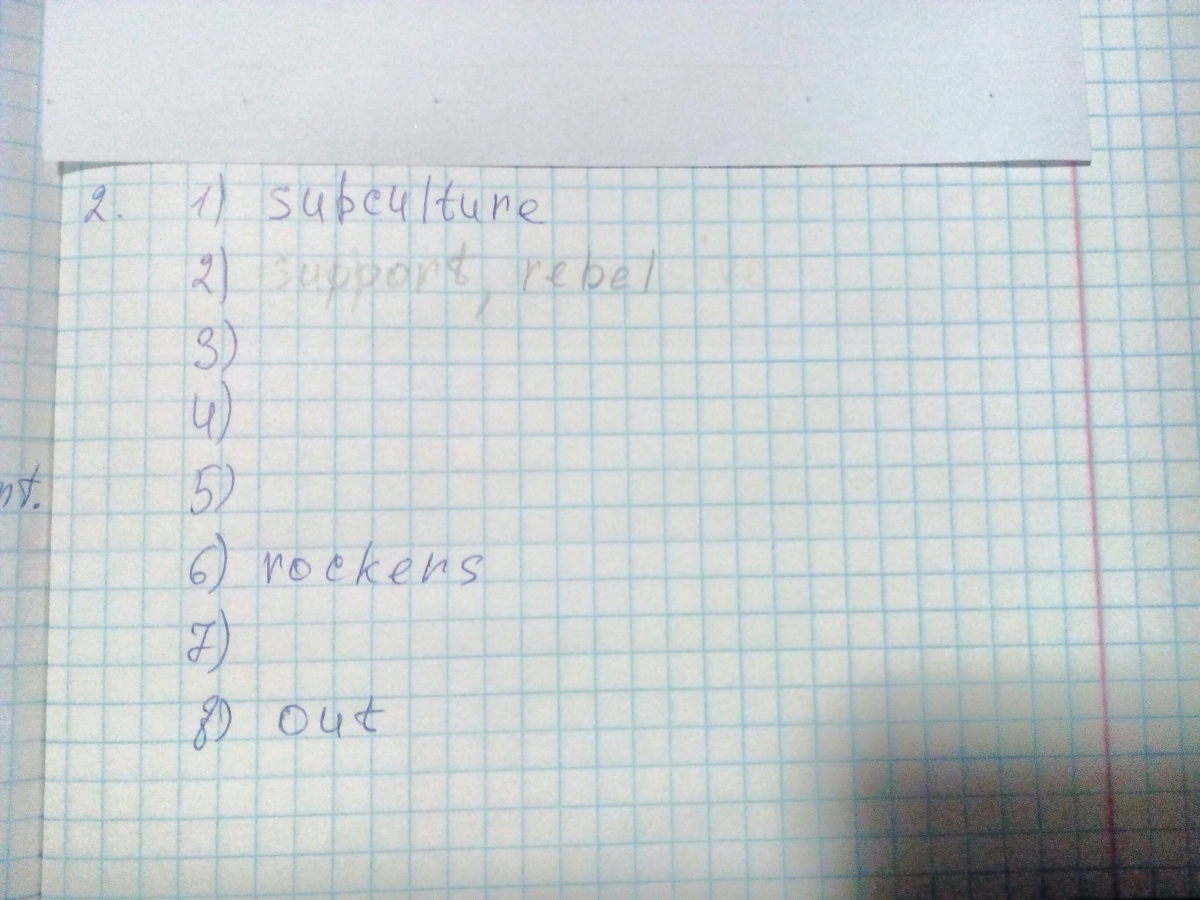 2. 1) subculture
2) support, rebel
3)
4)
nt. 5)
6) rockers
7)
8) out